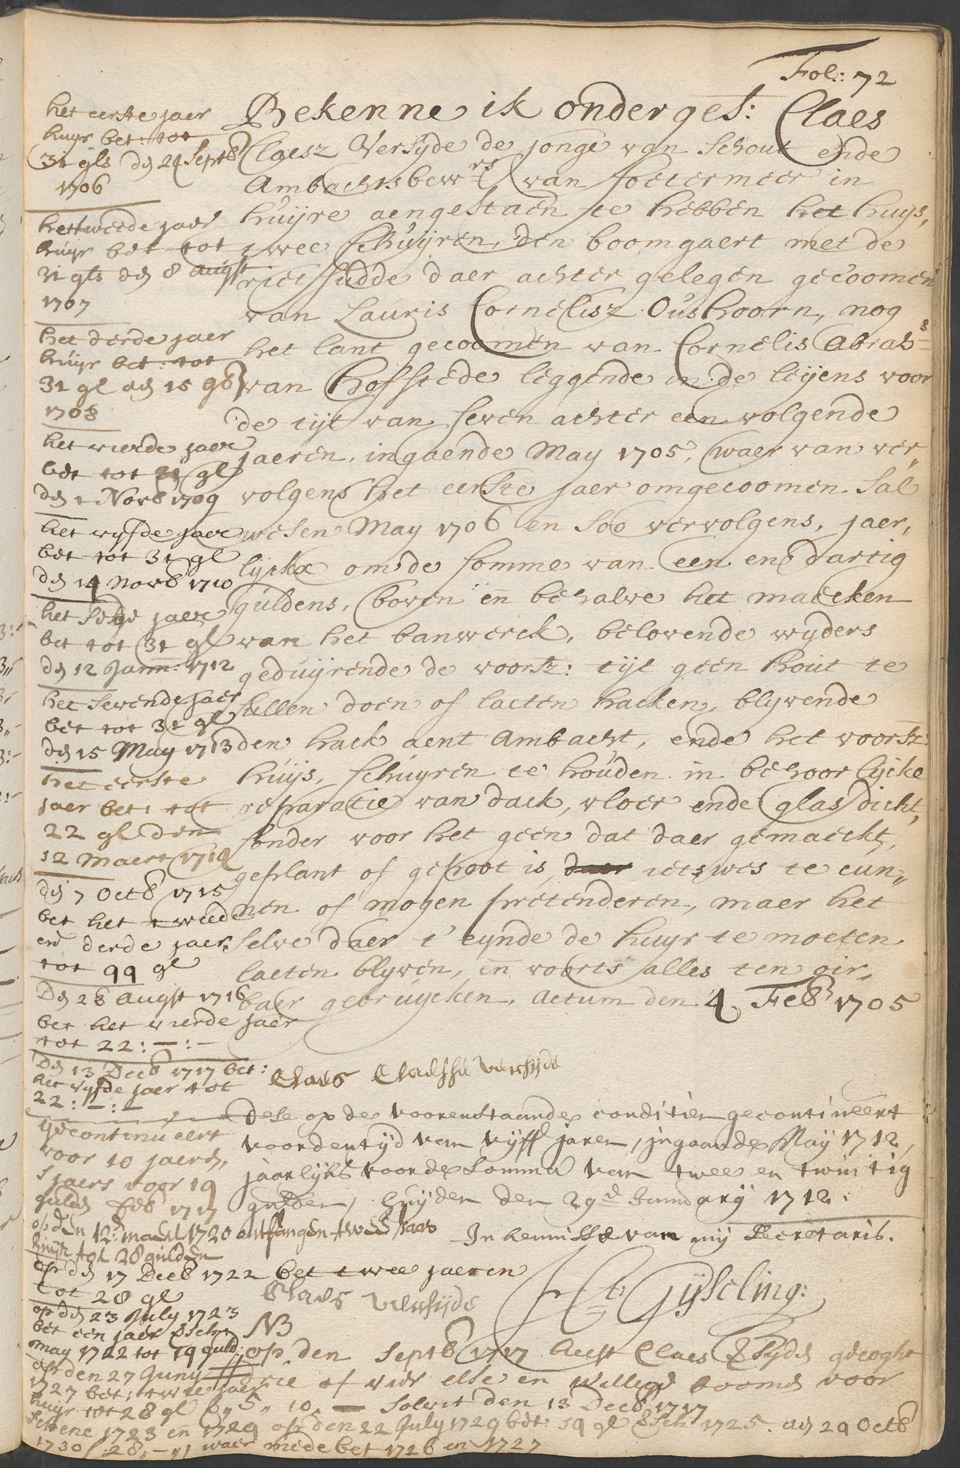 Fol: 72
Bekenne ik onderges: Claes
Claesz Versijde de jonge van Schout ende
Ambachtsbewrs van Soetermeer in
huijre aengestaen te hebben het huijs,
twee schuijren, den boomgaert met de
daer achter gelegen gecoomen
van Lauris Cornelisz Oushoorn, nog
het lant gecoomen van Cornelis Abrahs
van Hofstede leggende in de leijens voor
de tijt van seven achter een volgende
jaeren, ingaende May 1705, waer van ver
volgens het eerste jaer omgecoomen sal
wesen May 1706 en soo vervolgens, jaer,
lijckx om de somme van een en dartig
guldens, boven en behalve het maecken
van het banwerck, belovende wyders
geduijrende de voorsz: tijt geen hout te
sullen doen of laeten hacken, blyvende
den hack aent Ambacht, ende het voorsz
huijs, schuijren te houden in behoorlijcke
reparatie van dack, vloer ende glasdicht,
sonder voor het geen dat daer gemaeckt,
geplant of gepoot is, daer ietswes te cun„
nen of mogen pretenderen, maer het
selve daer t' eynde de huijr te moeten
laeten blyven, en voorts alles ten oir„
baer gebruijcken, Actum den 4 Feb 1705
Claes Claesse versijde
Dese op de voorenstaande conditien gecontineert
voor den tijd van vijff jaren, ingaande May 1712,
jaarlijks voor de somma van twee en twintig
gulden, den 29e January 1712:
In kennisse van mij Secretaris.
Gijseling:
Claes versijde
NB
op den Septb 1717 heeft Claes gecoght
drie of vier else en willige boomen voor
f 5„ 10„ — solvit den 13 Decb 1717
het eerste jaer
huijr bet: tot
31 gls den 24 Septb
1706
het tweede jaer
huijr bet tot
31 gls den 8 Augst
1707
het derde jaer
huijr bet: tot
31 gl den 15 9b
1708
het vierde jaer
bet tot 31 gl
den 1 Novb 1709
het vijfde jaer
bet tot 31 gl
den 14 Novb 1710
het sesde jaer
bet tot 31 gl
den 12 Jann: 1712
het sevende jaer
bet tot 31 gl
den 15 May 1713
het eerste
jaer bet: tot
22 gl den
12 Maert 1714
den 7 Octb 1715
bet het tweede
en derde jaer
tot 99 gl
Den 28 Augst 1716
bet het vierde jaer
tot 22:—:—
Den 13 Decb 1717 bet:
het vijfde jaer tot
22:—:—
gecontinueert
voor 10 jaeren,
's jaers voor 19
guld Feb 1717
op den 12 maert 1720 ontfangen twee jaer
huijr tot 28 gulden
op den 17 Decb 1722 bet twee jaeren
tot 28 gl
op den 23 July 1723
bet een jaer
may 1722 tot 19 guld
op den 27 Juny
1727 bet: twee jaer
huijr tot 28 gl
1723 en 1729 op den 22 July 1729 bet: 19 gl 1725 den 29 Octb
1730 f 28„—„ waer mede bet 1726 en 1727